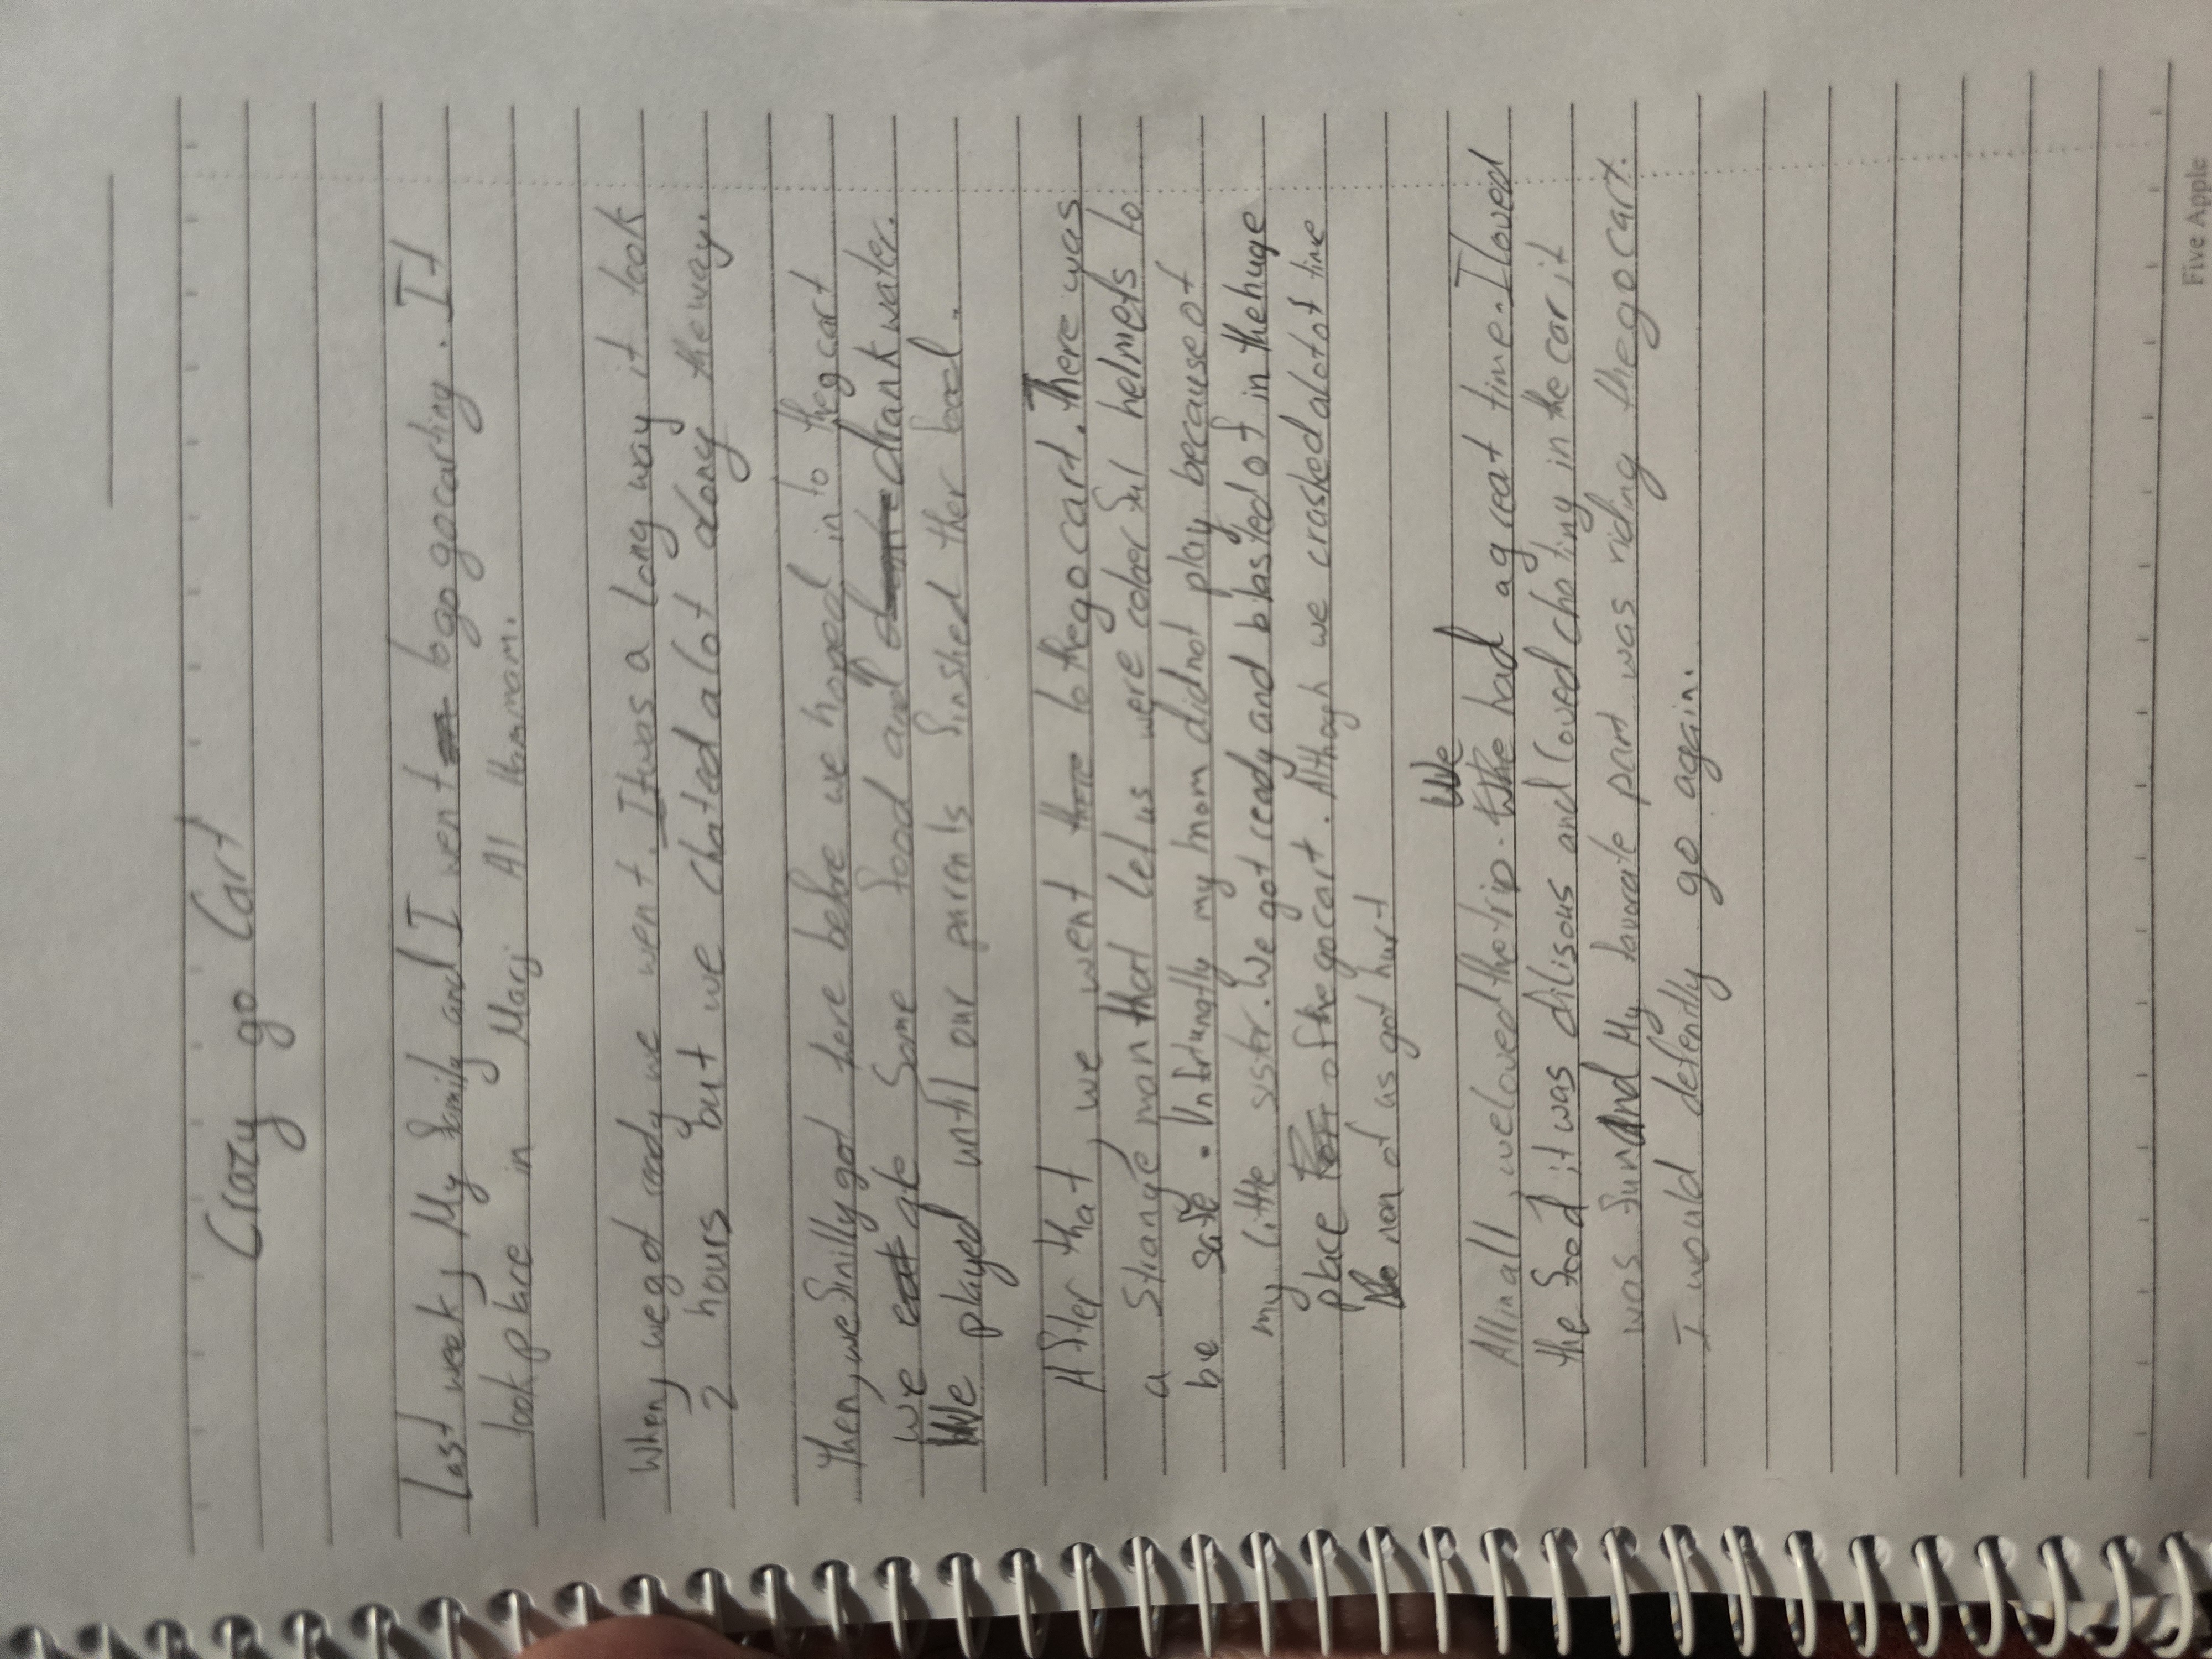 Crazy go Cart
Last week, My family and I went to go gocarting. It
took place in Marj Al Hammam.
When, we got ready we went. It was a long way it took
2 hours but we chated alot along the way.
Then, we finilly got there before we hopped in to the gcart
we ate some food and drank water.
We played until our parents finshed ther food.
After that, we went to the go cart. There was
a Stranye man that let us were coloer ful helmets to
be safe. Unfrtunatly my mom did not play because of
my little sister. We got ready and blasted of in the huge
place of the go cart. Although we crashed alot of time
non of us got hurt
All in all, we loved the trip. We had a great time. I loved
the food it was dilisous and loved chating in the car it
was fun And My favorate part was riding the go cart.
I would defently go again.
Five Apple